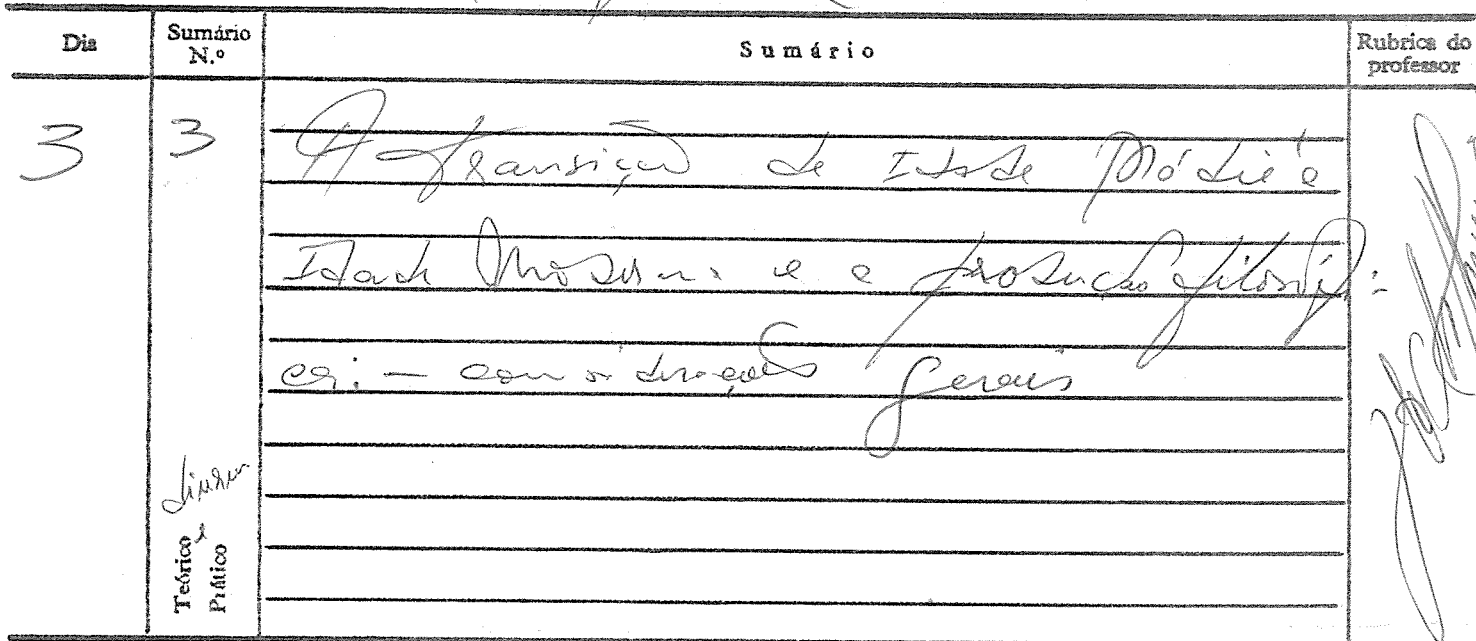 Dia
Sumário N.º
Sumário
Rubrica do professor
3
3
A transição da Idade Média à
Idade Moderna e a produção filosófi-
ca: — considerações gerais
Teórico
Prático